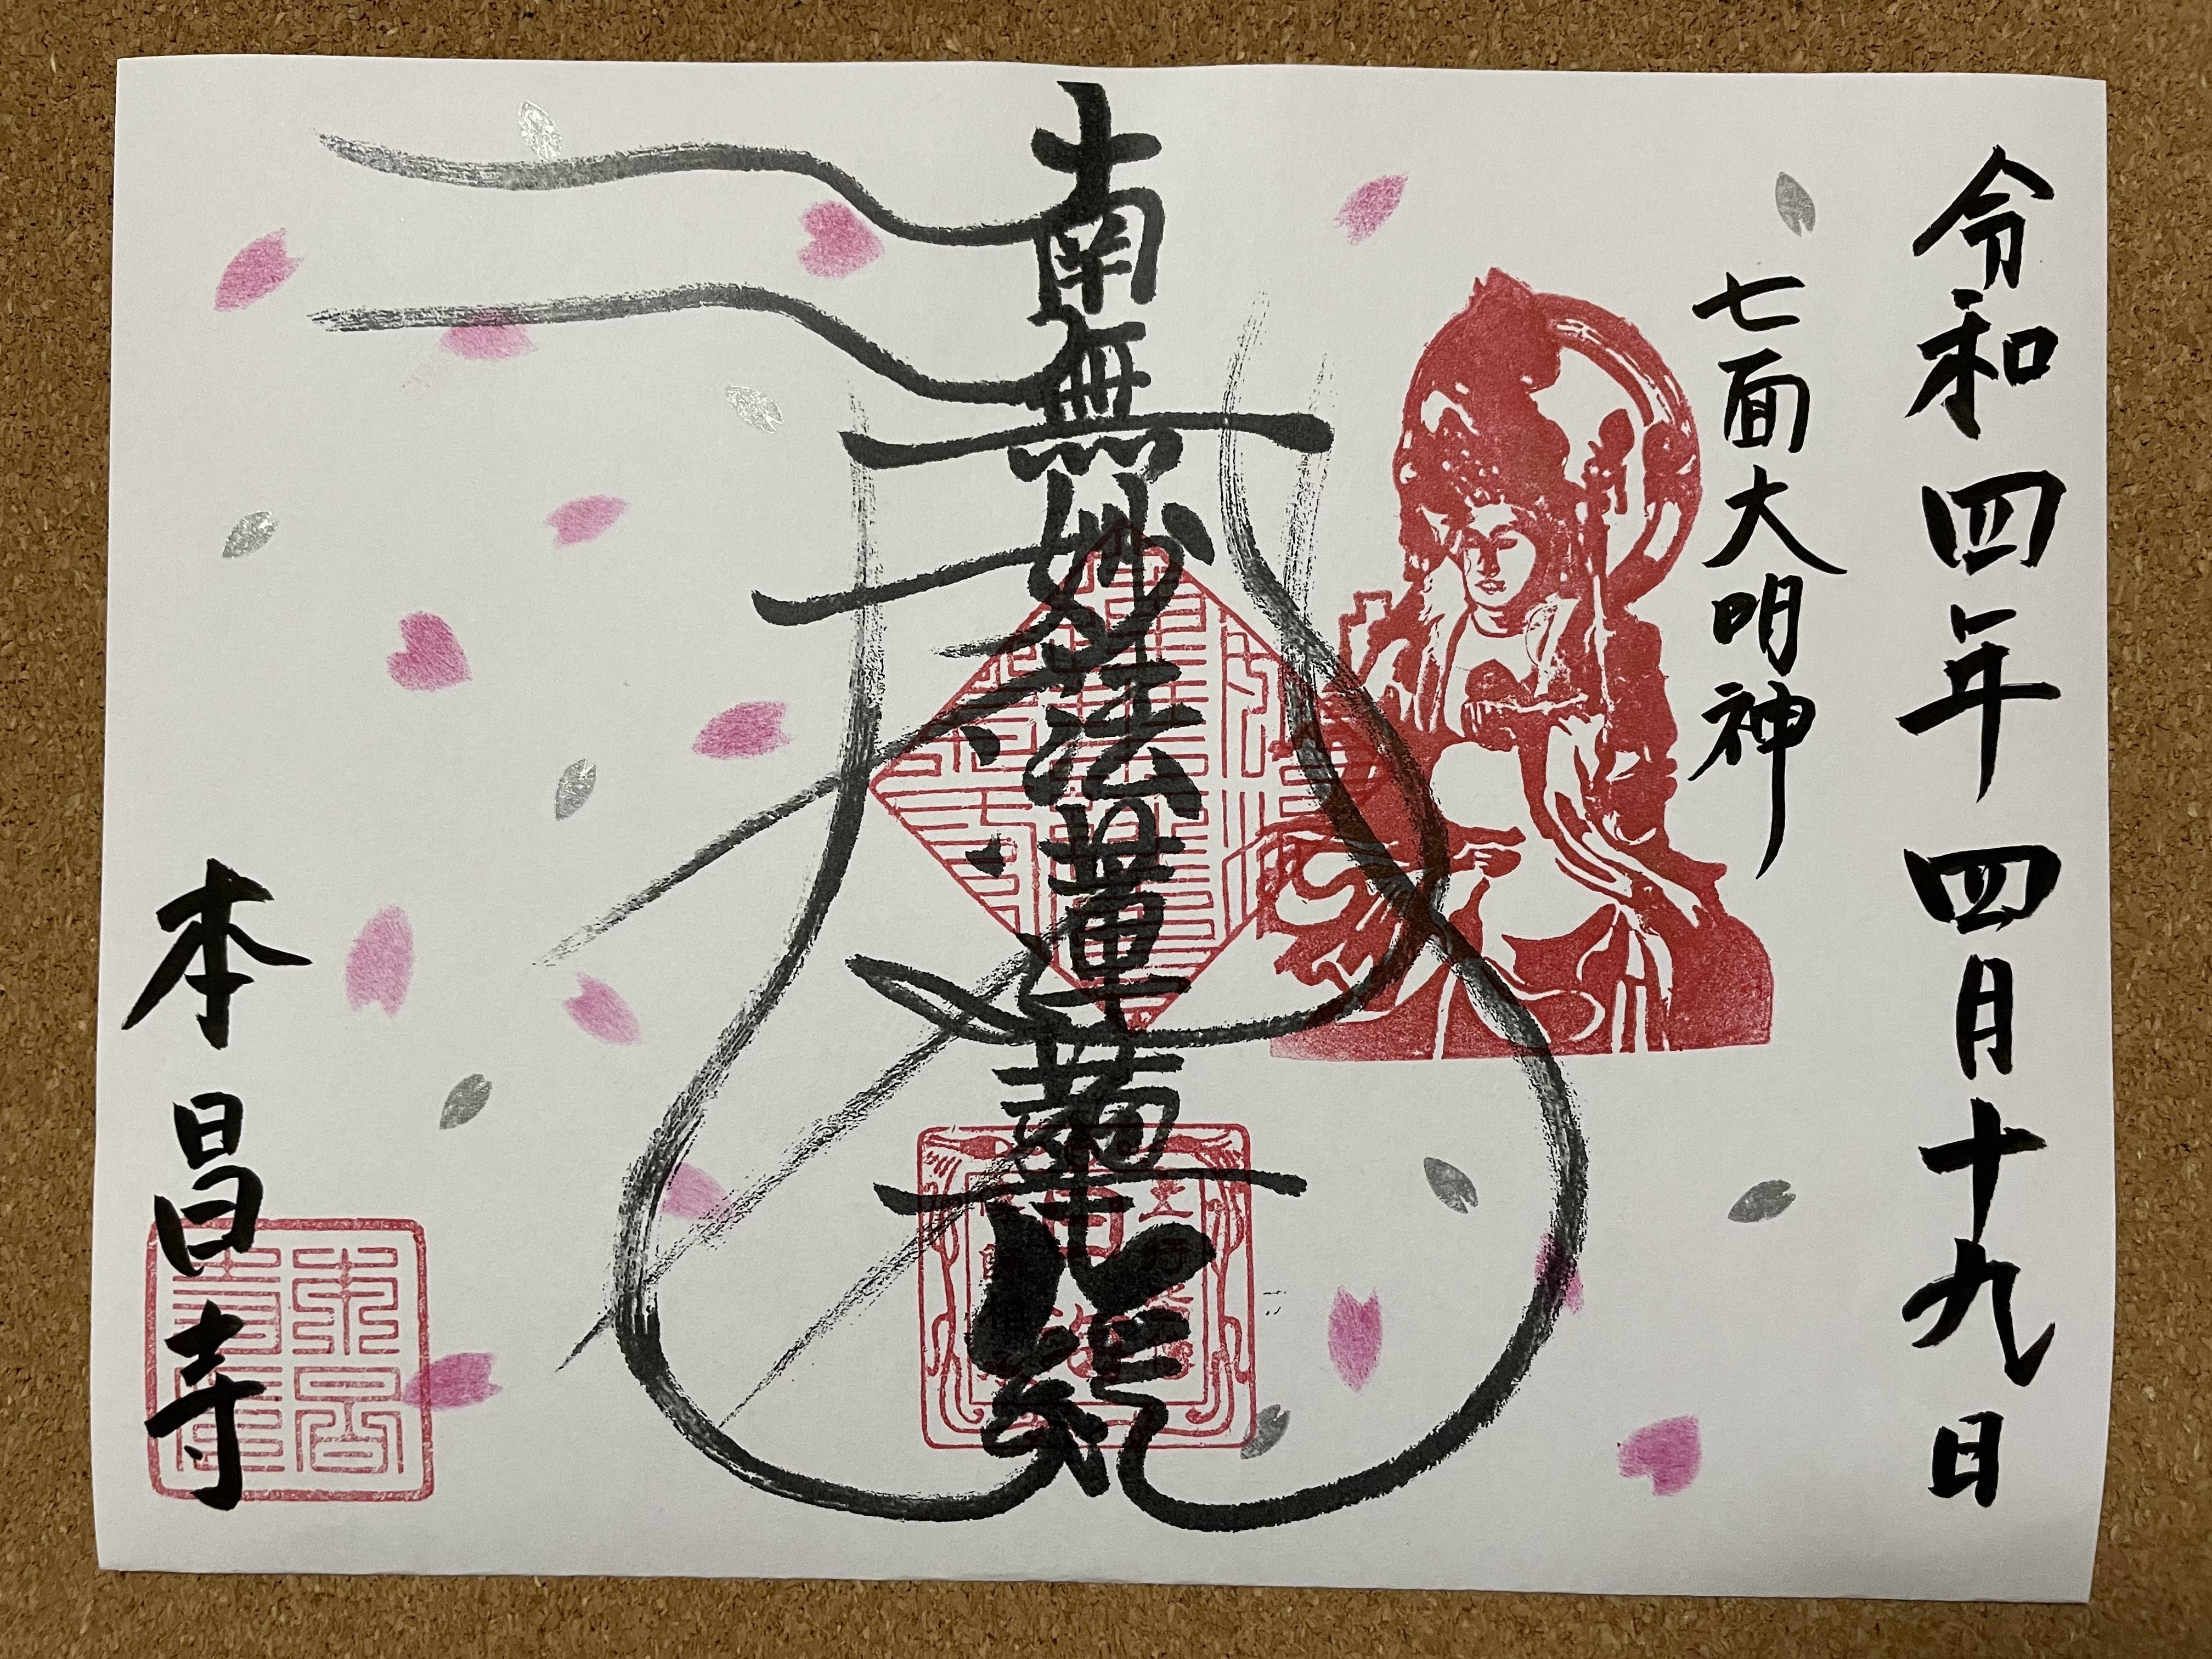 令和四年四月十九日
七面大明神
南無妙法蓮華経
本昌寺